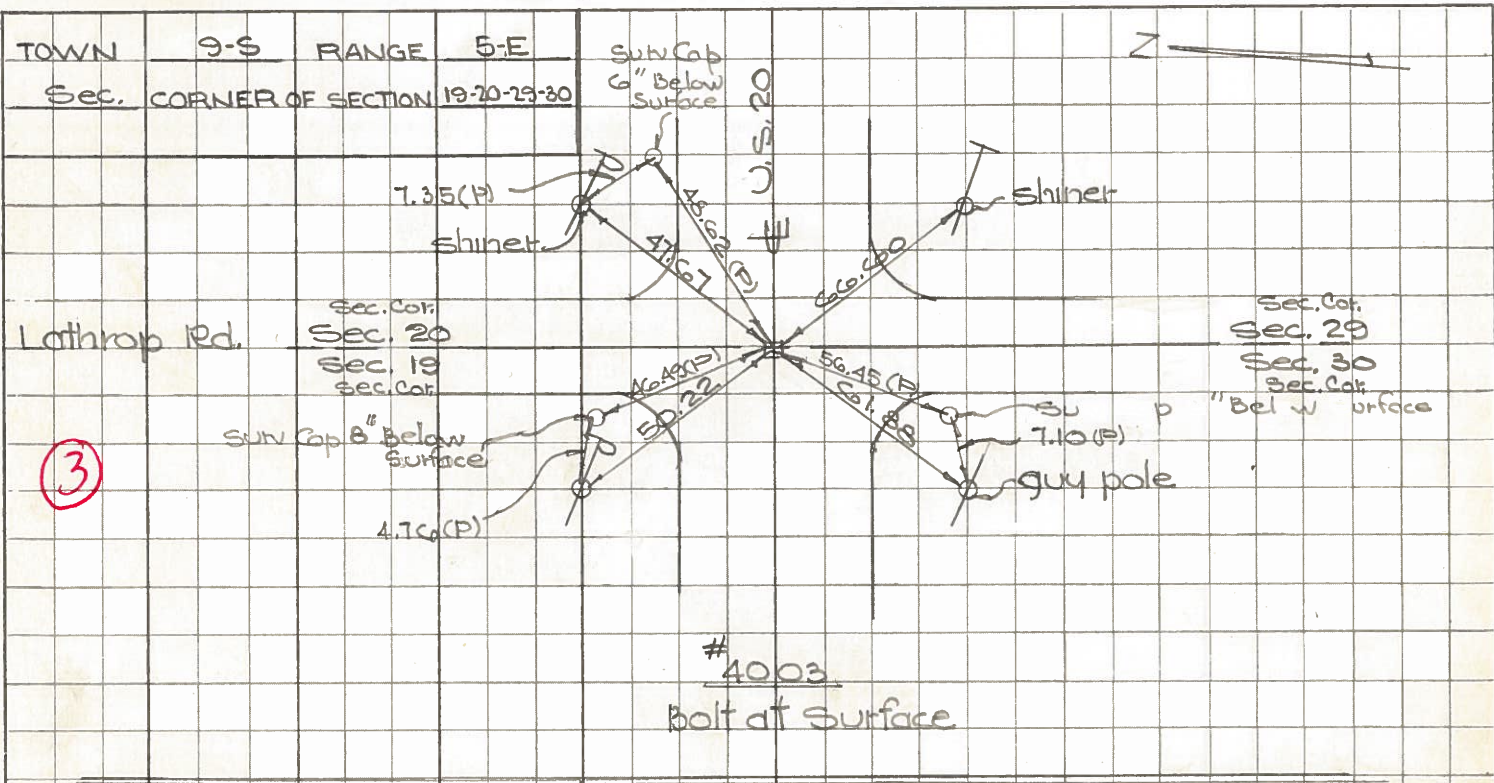 TOWN 9-S RANGE 5-E
Sec. CORNER OF SECTION 19-20-29-30
Surv Cap
6" Below
Surface
U.S. 20
Z
7.35(P)
shiner
48.62(P)
47.67
66.60
shiner
Lathrop Rd.
Sec. Cor.
Sec. 20
Sec. 19
Sec. Cor.
Sec. Cor.
Sec. 29
Sec. 30
Sec. Cor.
46.49(P)
56.45(P)
61.88
Surv Cap 8" Below
Surface
7.10(P)
guy pole
3
4.76(P)
#
4003
Bolt at Surface